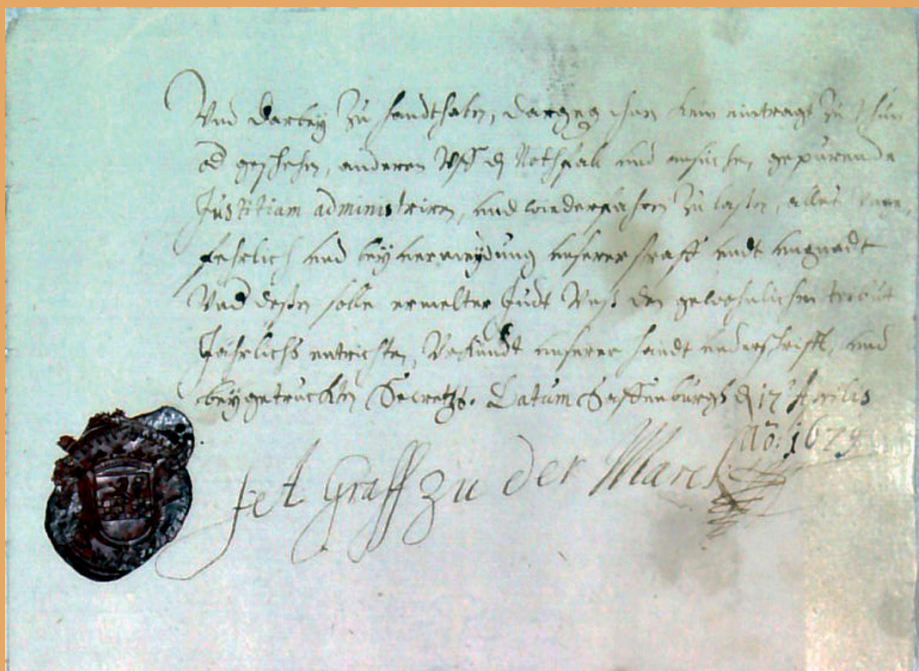 Und darbey zu handthaben, dargegen ihnen kein eintragh zu thun
od geschehen, anderen Uff d Nothfall und ansuchen, gepürende
Justitiam administriren, und wiederfahren zu lassen, alles unge
fehrlich und bey vermeydung unserer straff undt ungnadt
Und deßen solle ermelter Judt Unß den gewohnlichen tribut
Jährlichs entrichten, Uhrkundt unserer handt underschrifft, und
beygetruckten Secrets. Datum Saffenburgh d 17 Aprilis
Ao: 1629
Graff zu der Marck